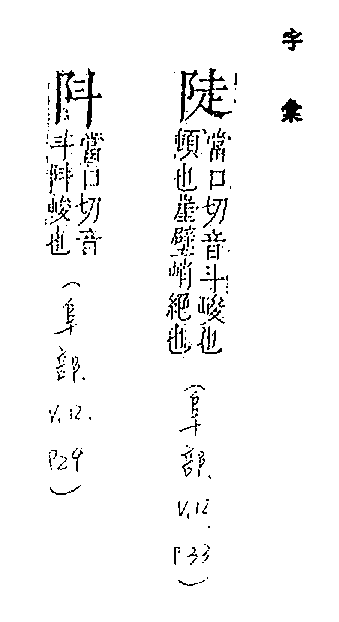 字彙
陡
當口切音斗峻也
頓也崖壁峭絕也
(阜部.
V.12.
P33)
阧
當口切音
斗阧峻也
(阜部.
V.12.
P29)